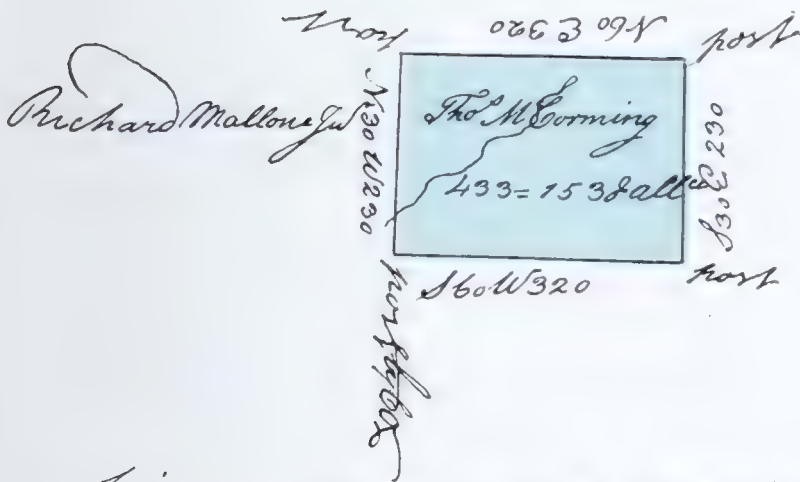 post
N60 E 320
post
Richard Mallone Jur
N30 W 230
Thos. McCorming
433 = 153 & allce
S30 E 230
post
S60 W 320
post